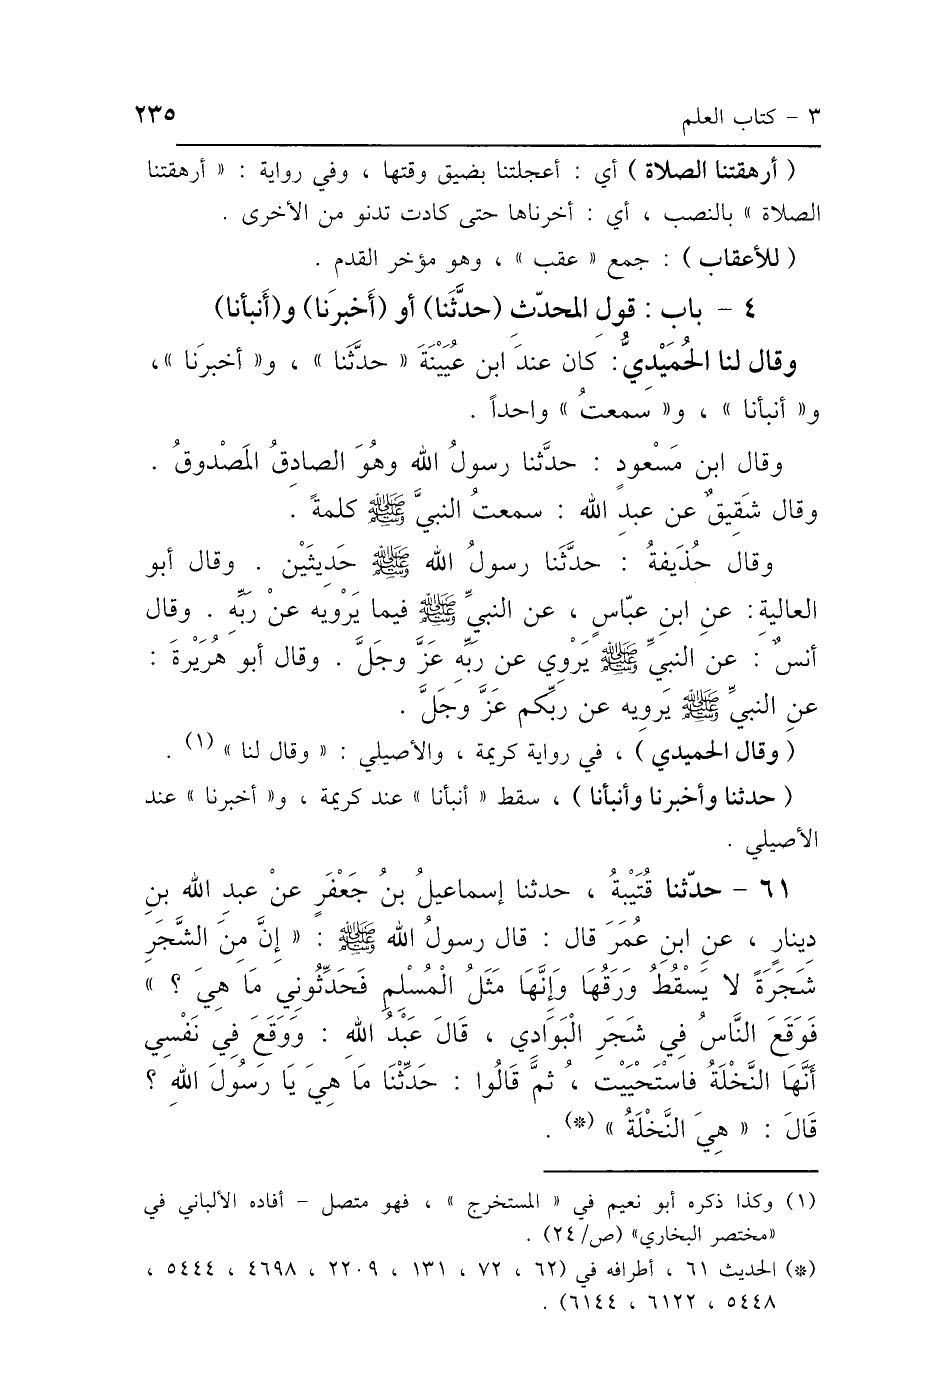 ٣ - كتاب العلم ٢٣٥
( أرهقتنا الصلاة ) أي : أعجلتنا بضيق وقتها ، وفي رواية : « أرهقتنا
الصلاة » بالنصب ، أي : أخرناها حتى كادت تدنو من الأخرى .
( للأعقاب ) : جمع « عقب » ، وهو مؤخر القدم .
٤ - باب : قول المحدّث (حدَّثَنا) أو (أَخبرَنا) و(أَنبأنا)
وقال لنا الحُمَيْدِيُّ: كان عندَ ابن عُيَيْنَةَ « حدَّثَنا » ، و« أخبرَنا »،
و« أنبأنا » ، و« سمعتُ » واحداً .
وقال ابن مَسْعودٍ : حدَّثنا رسولُ الله وهوَ الصادِقُ المَصْدوقُ .
وقال شَقِيقٌ عن عبدِ الله : سمعتُ النبيَّ ﷺ كلمةً .
وقال حُذَيفةُ : حدَّثَنا رسولُ الله ﷺ حَدِيثَيْن . وقال أبو
العالية: عنِ ابنِ عبّاسٍ ، عن النبيِّ ﷺ فيما يَرْوِيه عنْ رَبِّه . وقال
أنسٌ : عن النبيِّ ﷺ يَرْوِي عن ربِّه عَزَّ وجَلَّ . وقال أبو هُرَيْرةَ :
عنِ النبيِّ ﷺ يَروِيه عن ربِّكم عَزَّ وجَلَّ .
( وقال الحميدي ) ، في رواية كريمة ، والأصيلي : « وقال لنا » (١) .
( حدثنا وأخبرنا وأنبأنا ) ، سقط « أنبأنا » عند كريمة ، و« أخبرنا » عند
الأصيلي .
٦١ - حدّثنا قُتَيْبةُ ، حدثنا إسماعيلُ بنُ جَعْفَرٍ عنْ عبدِ الله بنِ
دِينارٍ ، عنِ ابنِ عُمَرَ قال : قال رسولُ الله ﷺ : « إنَّ مِنَ الشَّجَرِ
شَجَرَةً لا يَسْقُطُ وَرَقُهَا وَإنَّهَا مَثَلُ الْمُسْلِمِ فَحَدِّثُونِي مَا هِيَ ؟ »
فَوَقَعَ النَّاسُ فِي شَجَرِ الْبَوَادِي ، قَالَ عَبْدُ اللهِ : وَوَقَعَ فِي نَفْسِي
أَنَّهَا النَّخْلَةُ فاسْتَحْيَيْت ، ثُمَّ قَالُوا : حَدِّثْنَا مَا هِيَ يَا رَسُولَ اللهِ ؟
قَالَ : « هِيَ النَّخْلَةُ » (*) .
(١) وكذا ذكره أبو نعيم في « المستخرج » ، فهو متصل - أفاده الألباني في
«مختصر البخاري» (ص/٢٤) .
(*) الحديث ٦١ ، أطرافه في (٦٢ ، ٧٢ ، ١٣١ ، ٢٢٠٩ ، ٤٦٩٨ ، ٥٤٤٤ ،
٥٤٤٨ ، ٦١٢٢ ، ٦١٤٤) .